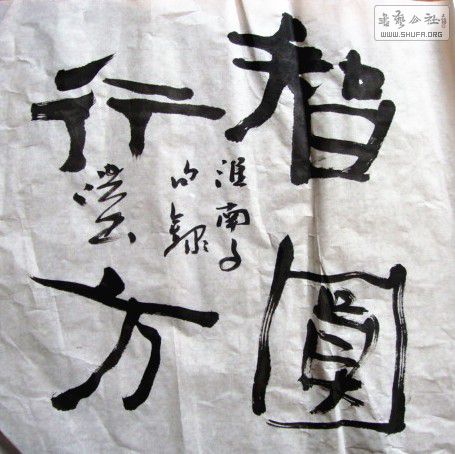 智圓
行方
淮南子
句錄
书艺公社
WWW.SHUFA.ORG